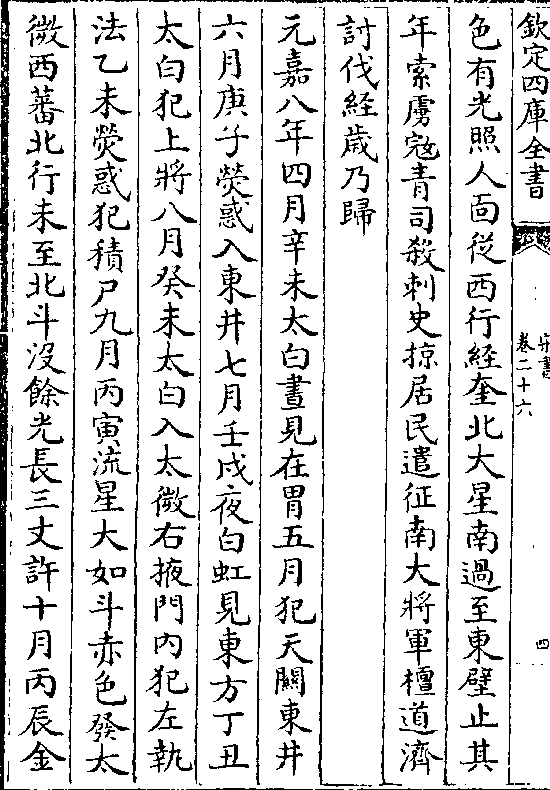 欽定四庫全書
宋書
卷二十六
四
色有光照人面從西行經奎北大星南過至東壁止其
年索虜寇青司殺刺史掠居民遣征南大將軍檀道濟
討伐經歲乃歸
元嘉八年四月辛未太白晝見在胃五月犯天關東井
六月庚子熒惑入東井七月壬戌夜白虹見東方丁丑
太白犯上將八月癸未太白入太微右掖門內犯左執
法乙未熒惑犯積尸九月丙寅流星大如斗赤色發太
微西蕃北行未至北斗沒餘光長三丈許十月丙辰金